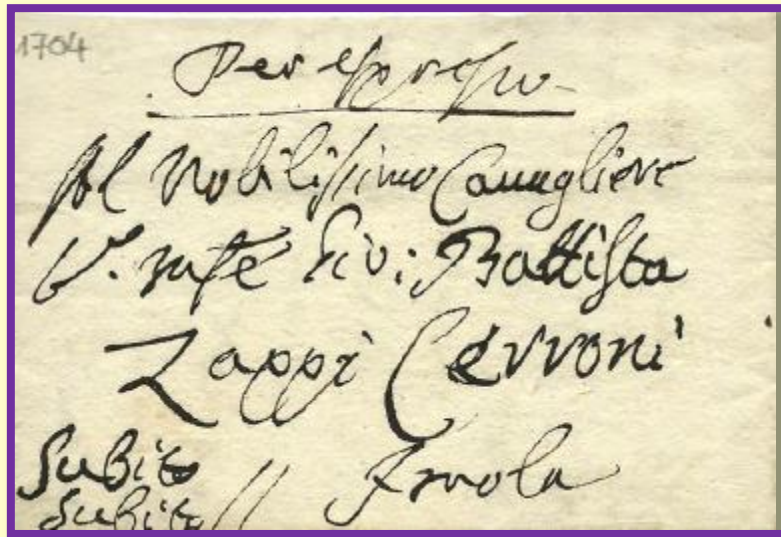 1704
Per espresso
Al Nobilissimo Cavagliere
Gio: Battista
Zappi Cerroni
Subito
Subito // Imola